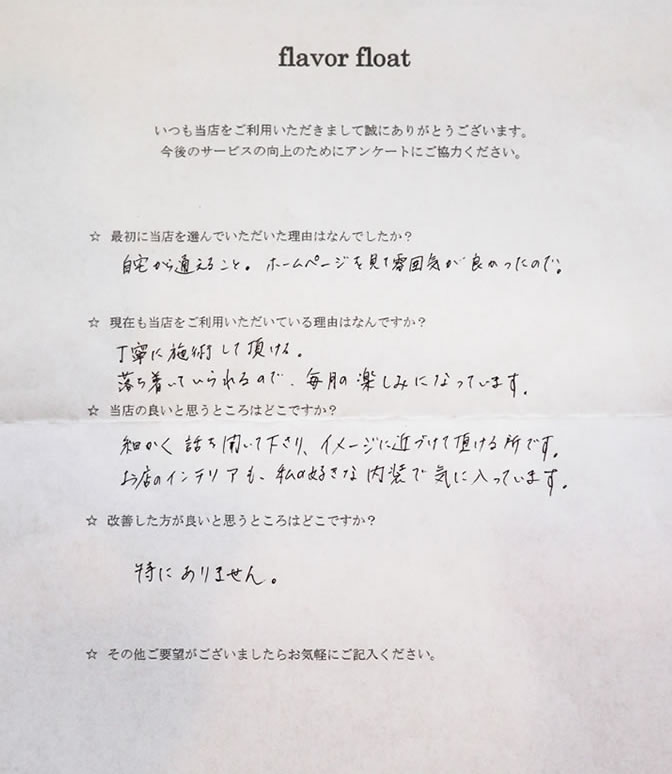 flavor float
いつも当店をご利用いただきまして誠にありがとうございます。
今後のサービスの向上のためにアンケートにご協力ください。
☆ 最初に当店を選んでいただいた理由はなんでしたか？
自宅から通えること。ホームページを見て雰囲気が良かったので。
☆ 現在も当店をご利用いただいている理由はなんですか？
丁寧に施術して頂ける。
落ち着いていられるので、毎月の楽しみになっています。
☆ 当店の良いと思うところはどこですか？
細かく話を聞いて下さり、イメージに近づけて頂ける所です。
お店のインテリアも、私の好きな内装で気に入っています。
☆ 改善した方が良いと思うところはどこですか？
特にありません。
☆ その他ご要望がございましたらお気軽にご記入ください。